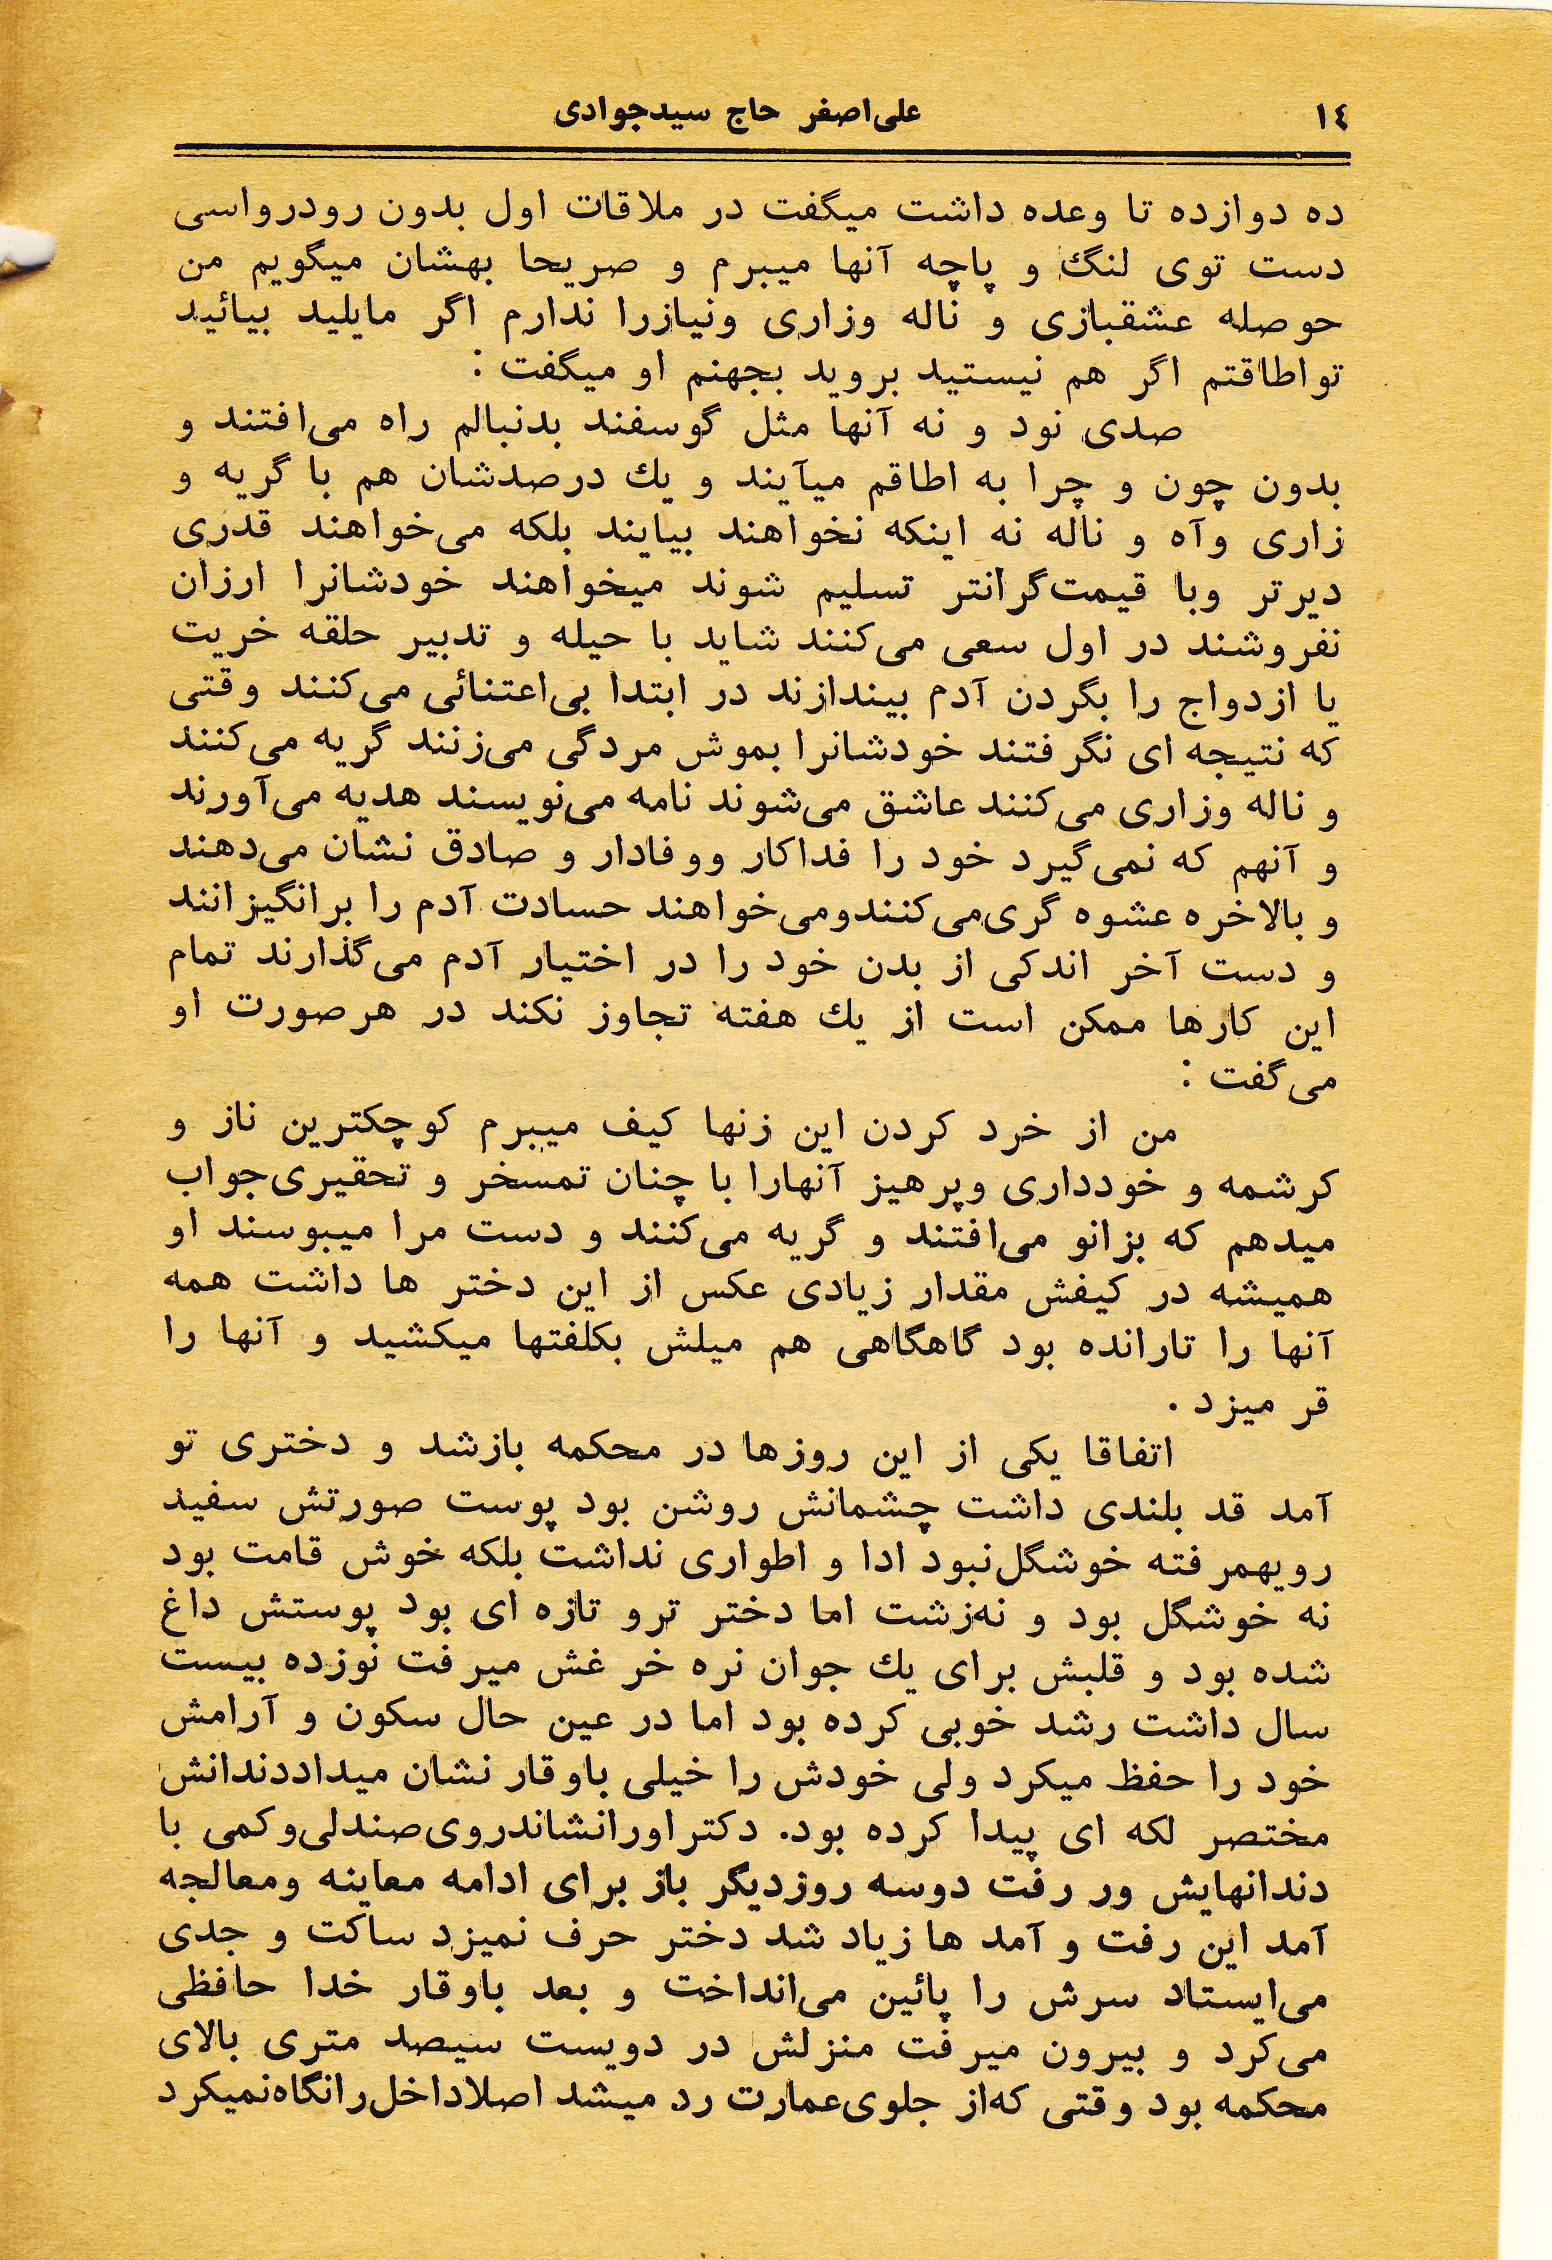 ١٤
علی‌اصغر حاج سیدجوادی
ده دوازده تا وعده داشت میگفت در ملاقات اول بدون رودرواسی
دست توی لنگ و پاچه آنها میبرم و صریحا بهشان میگویم من
حوصله عشقبازی و ناله وزاری ونیازرا ندارم اگر مایلید بیائید
تواطاقتم اگر هم نیستید بروید بجهنم او میگفت :
صدی نود و نه آنها مثل گوسفند بدنبالم راه می‌افتند و
بدون چون و چرا به اطاقم میآیند و یك درصدشان هم با گریه و
زاری وآه و ناله نه اینکه نخواهند بیایند بلکه می‌خواهند قدری
دیرتر وبا قیمت‌گرانتر تسلیم شوند میخواهند خودشانرا ارزان
نفروشند در اول سعی می‌کنند شاید با حیله و تدبیر حلقه خریت
یا ازدواج را بگردن آدم بیندازند در ابتدا بی‌اعتنائی می‌کنند وقتی
که نتیجه ای نگرفتند خودشانرا بموش مردگی می‌زنند گریه می‌کنند
و ناله وزاری می‌کنند عاشق می‌شوند نامه می‌نویسند هدیه می‌آورند
و آنهم که نمی‌گیرد خود را فداکار ووفادار و صادق نشان می‌دهند
و بالاخره عشوه گری‌می‌کنندومی‌خواهند حسادت آدم را برانگیزانند
و دست آخر اندکی از بدن خود را در اختیار آدم می‌گذارند تمام
این کارها ممکن است از یك هفته تجاوز نکند در هرصورت او
می‌گفت :
من از خرد کردن این زنها کیف میبرم کوچکترین ناز و
کرشمه و خودداری وپرهیز آنهارا با چنان تمسخر و تحقیری‌جواب
میدهم که بزانو می‌افتند و گریه می‌کنند و دست مرا میبوسند او
همیشه در کیفش مقدار زیادی عکس از این دختر ها داشت همه
آنها را تارانده بود گاهگاهی هم میلش بکلفتها میکشید و آنها را
قر میزد .
اتفاقا یکی از این روزها در محکمه بازشد و دختری تو
آمد قد بلندی داشت چشمانش روشن بود پوست صورتش سفید
رویهمرفته خوشگل‌نبود ادا و اطواری نداشت بلکه خوش قامت بود
نه خوشگل بود و نه‌زشت اما دختر ترو تازه ای بود پوستش داغ
شده بود و قلبش برای یك جوان نره خر غش میرفت نوزده بیست
سال داشت رشد خوبی کرده بود اما در عین حال سکون و آرامش
خود را حفظ میکرد ولی خودش را خیلی باوقار نشان میداددندانش
مختصر لکه ای پیدا کرده بود. دکتراورانشاندروی‌صندلی‌وکمی با
دندانهایش ور رفت دوسه روزدیگر باز برای ادامه معاینه ومعالجه
آمد این رفت و آمد ها زیاد شد دختر حرف نمیزد ساکت و جدی
می‌ایستاد سرش را پائین می‌انداخت و بعد باوقار خدا حافظی
می‌کرد و بیرون میرفت منزلش در دویست سیصد متری بالای
محکمه بود وقتی که‌از جلوی‌عمارت رد میشد اصلاداخل‌رانگاه‌نمیکرد